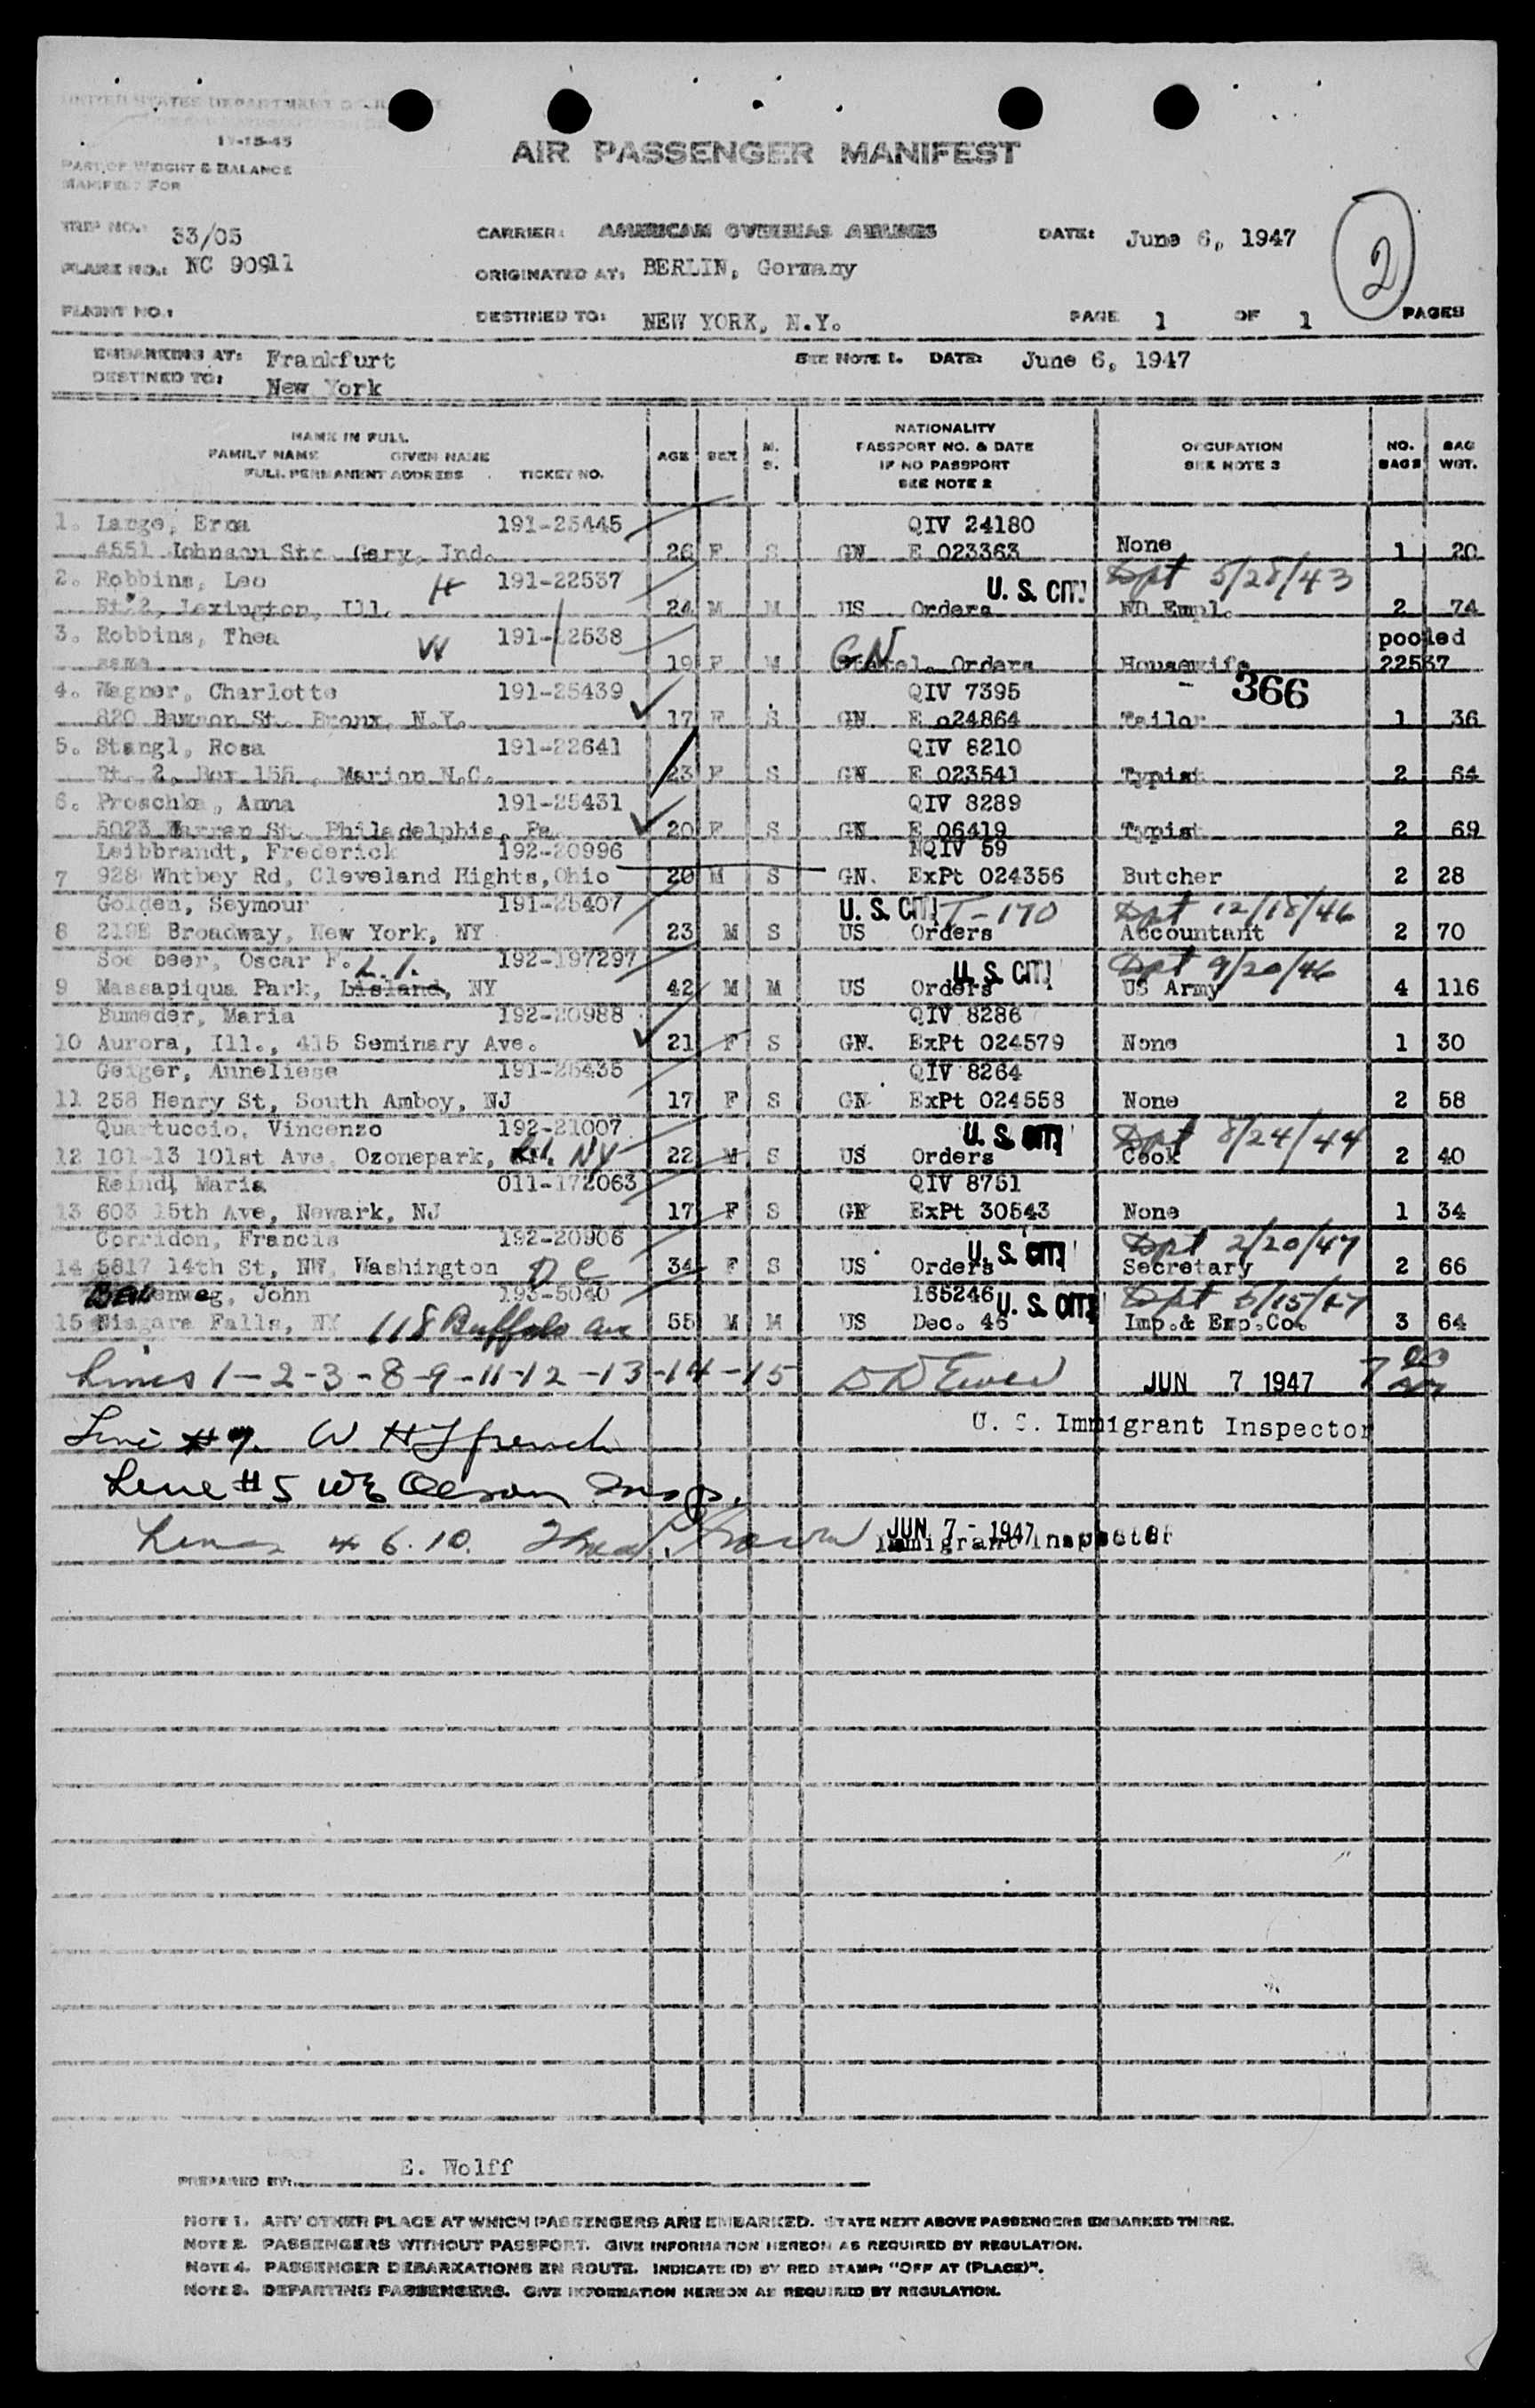 UNITED STATES DEPARTMENT OF
11-15-45
PART OF WEIGHT & BALANCE
MANIFEST FOR
AIR PASSENGER MANIFEST
TRIP NO.: 33/05
CARRIER: AMERICAN OVERSEAS AIRLINES
DATE: June 6, 1947
2
PLANE NO.: NC 90911
ORIGINATED AT: BERLIN, Germany
FLIGHT NO.:
DESTINED TO: NEW YORK, N.Y.
PAGE 1 OF 1 PAGES
EMBARKING AT: Frankfurt
SEE NOTE 1. DATE: June 6, 1947
DESTINED TO: New York
NAME IN FULL
FAMILY NAME GIVEN NAME
FULL PERMANENT ADDRESS TICKET NO.
AGE SEX M. S.
NATIONALITY
PASSPORT NO. & DATE
IF NO PASSPORT
SEE NOTE 2
OCCUPATION
SEE NOTE 3
NO. BAGS
BAG WGT.
1. Large, Erna 191-25445 QIV 24180
4551 Johnson Str. Gary, Ind. 26 F S GN E 023363 None 1 20
2. Robbins, Leo H 191-22537 U. S. CIT. Dpt 5/28/43
Rt. 2, Lexington, Ill. 24 M M US Orders WD Empl. 2 74
3. Robbins, Thea W 191-22538 GN pooled
same 19 F M Orders Housewife 22537
4. Wagner, Charlotte 191-25439 QIV 7395 366
820 St. Bronx, N.Y. 17 F S GN E 024864 Tailor 1 36
5. Stangl, Rosa 191-22641 QIV 8210
Rt. 2, Box 155, Marion N.C. 23 F S GN E 023541 Typist 2 64
6. Proschka, Anna 191-25431 QIV 8289
5023 Warren St. Philadelphia, Pa. 20 F S GN E 06419 Typist 2 69
Leibbrandt, Frederick 192-20996 NQIV 59
7 928 Whtbey Rd, Cleveland Hights, Ohio 20 M S GN. ExPt 024356 Butcher 2 28
Golden, Seymour 191-25407 U. S. CIT. T-170 Dpt 12/18/46
8 Broadway, New York, NY 23 M S US Orders Accountant 2 70
beer, Oscar F. L.I. 192-197297 U. S. CIT. Dpt 9/20/46
9 Massapiqua Park, Lisland, NY 42 M M US Orders US Army 4 116
Bumeder, Maria 192-20988 QIV 8286
10 Aurora, Ill., 415 Seminary Ave. 21 F S GN. ExPt 024579 None 1 30
Geiger, Anneliese 191-25435 QIV 8264
11 258 Henry St, South Amboy, NJ 17 F S GN ExPt 024558 None 2 58
Quartuccio, Vincenzo 192-21007 U. S. CIT. Dpt 8/24/44
12 101-13 101st Ave, Ozonepark, L.I. NY 22 M S US Orders Cook 2 40
Reindl, Maria 011-172063 QIV 8751
13 603 15th Ave, Newark, NJ 17 F S GN ExPt 30543 None 1 34
Corridon, Francis 192-20906 U. S. CIT. Dpt 2/20/47
14 5817 14th St, NW, Washington D C 34 F S US Orders Secretary 2 66
John 193-5040 165246 U. S. CIT. Dpt 5/15/47
15 Niagara Falls, NY 118 Buffalo Ave 55 M M US Dec. 46 Imp.& Exp.Co. 3 64
Lines 1-2-3-8-9-11-12-13-14-15 JUN 7 1947
U. S. Immigrant Inspector
Line #7. W H French
Line #5 WE Olson Insp.
Lines 4 6. 10. JUN 7 - 1947
Immigrant Inspector
PREPARED BY: E. Wolff
NOTE 1. ANY OTHER PLACE AT WHICH PASSENGERS ARE EMBARKED. STATE NEXT ABOVE PASSENGERS EMBARKED THERE.
NOTE 2. PASSENGERS WITHOUT PASSPORT. GIVE INFORMATION HEREON AS REQUIRED BY REGULATION.
NOTE 4. PASSENGER DEBARKATIONS EN ROUTE. INDICATE (D) BY RED STAMP: "OFF AT (PLACE)".
NOTE 3. DEPARTING PASSENGERS. GIVE INFORMATION HEREON AS REQUIRED BY REGULATION.